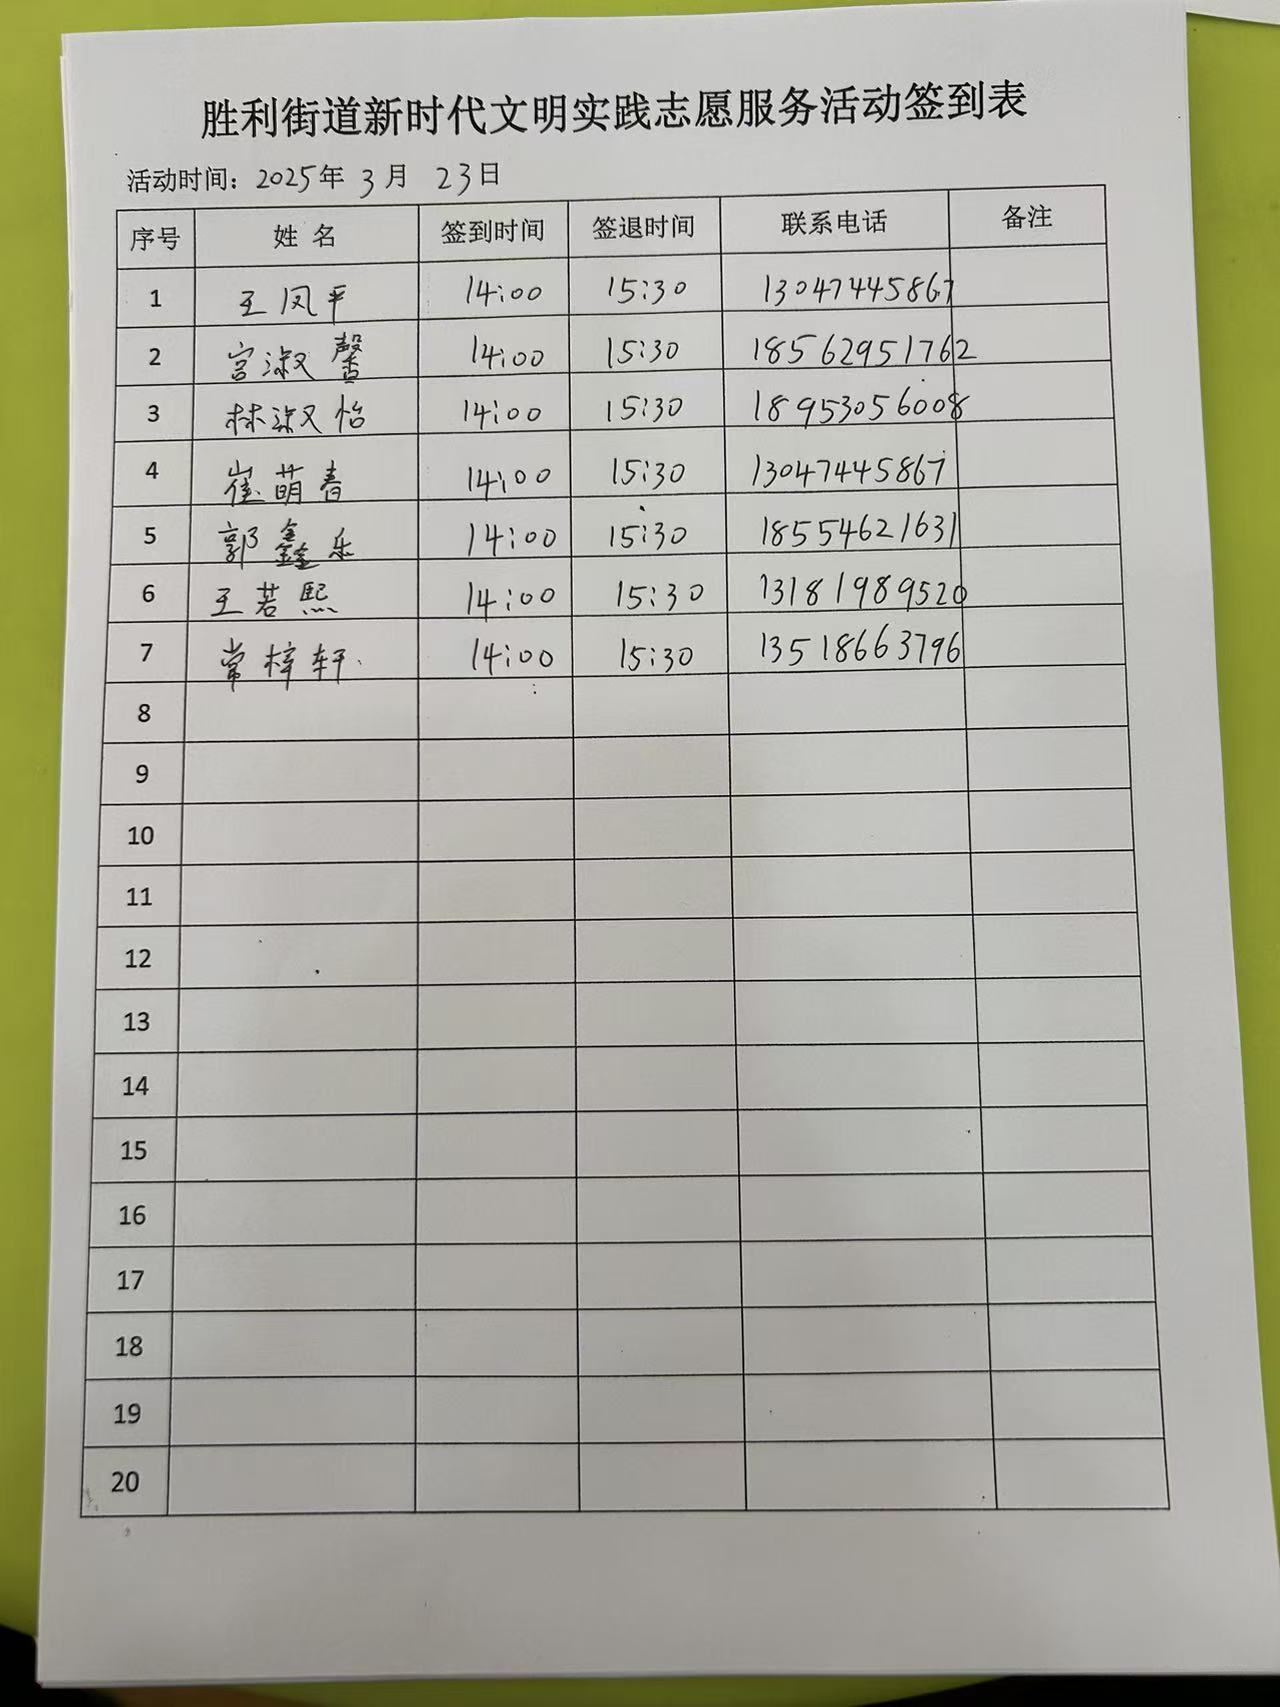 胜利街道新时代文明实践志愿服务活动签到表
活动时间：2025年 3月 23日
序号 姓 名 签到时间 签退时间 联系电话 备注
1 王凤平 14:00 15:30 13047445867
2 宫淑馨 14:00 15:30 18562951762
3 林淑怡 14:00 15:30 18953056008
4 崔萌春 14:00 15:30 13047445867
5 郭鑫乐 14:00 15:30 18554621631
6 王若熙 14:00 15:30 13181989520
7 常梓轩 14:00 15:30 13518663796
8
9
10
11
12
13
14
15
16
17
18
19
20